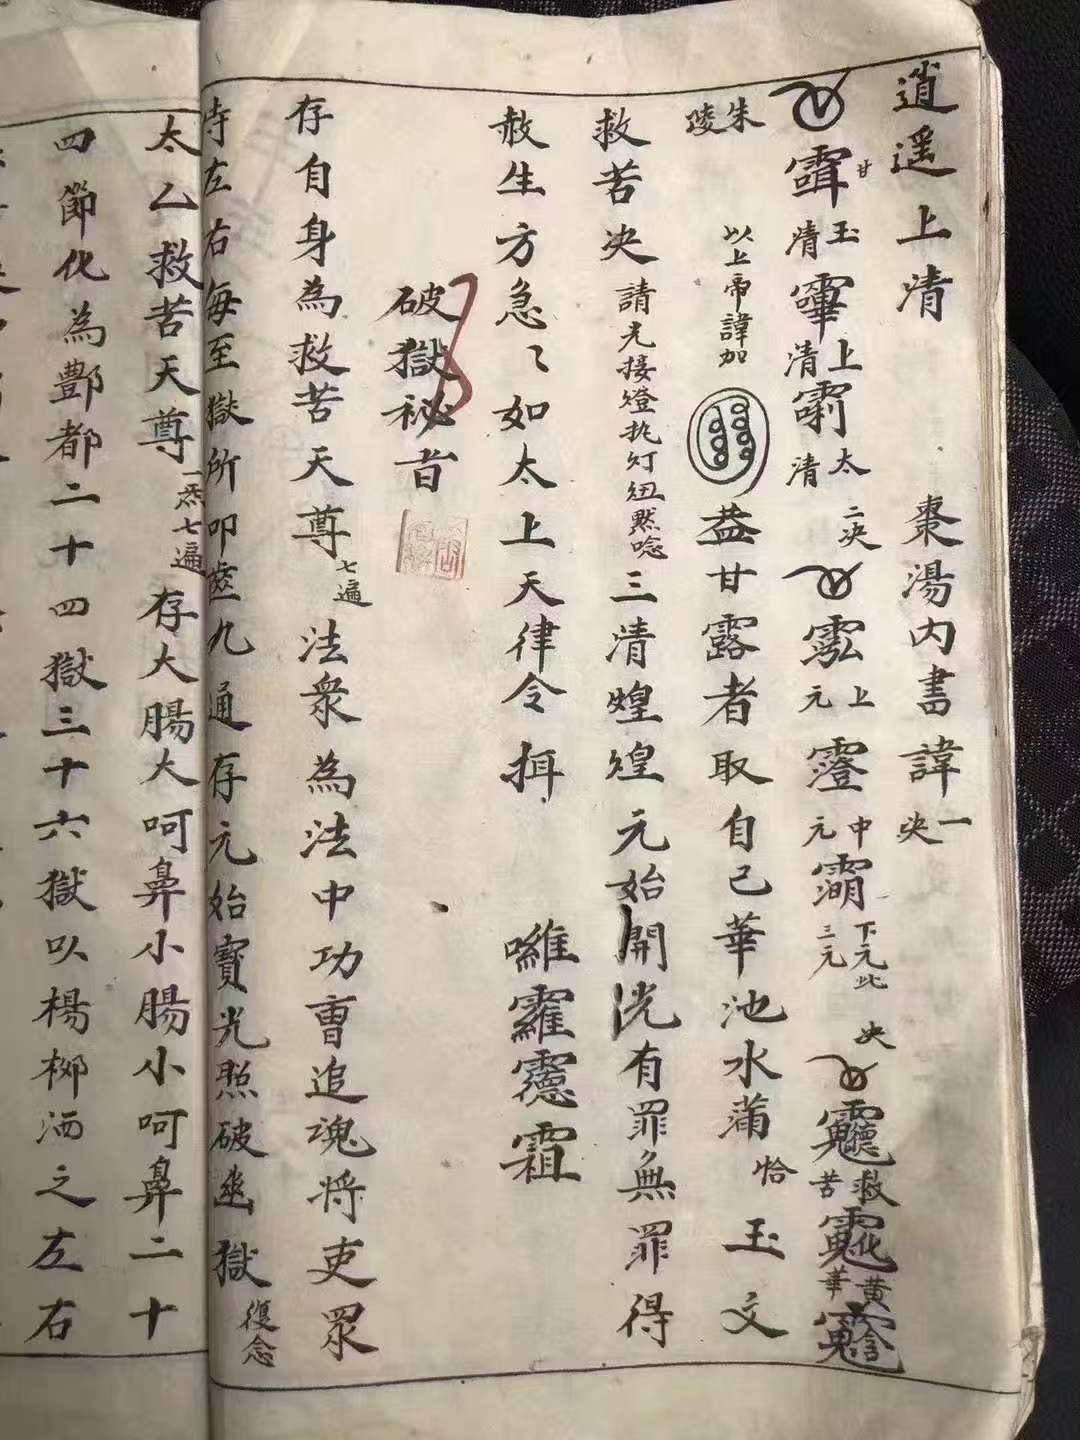 逍遥上清 棗湯内書諱 一决
甘 玉清 上清 太清 二决 上元 中元 下元此三元 决 救苦 黄華
朱陵 以上帝諱加 益甘露者取自己華池水蒲 恰 玉文
救苦决 請先接燈执灯纽默唸 三清煌煌元始開洸有罪無罪得
赦生方急〻如太上天律令挕 囉
破獄祕旨
存自身為救苦天尊 七遍 法衆為法中功曺追魂将吏眾
侍左右每至獄所叩齒九通存元始寳光照破幽獄 復念
太乙救苦天尊 一炁七遍 存大腸大呵鼻小腸小呵鼻二十
四節化為酆都二十四獄三十六獄以楊柳洒之左右